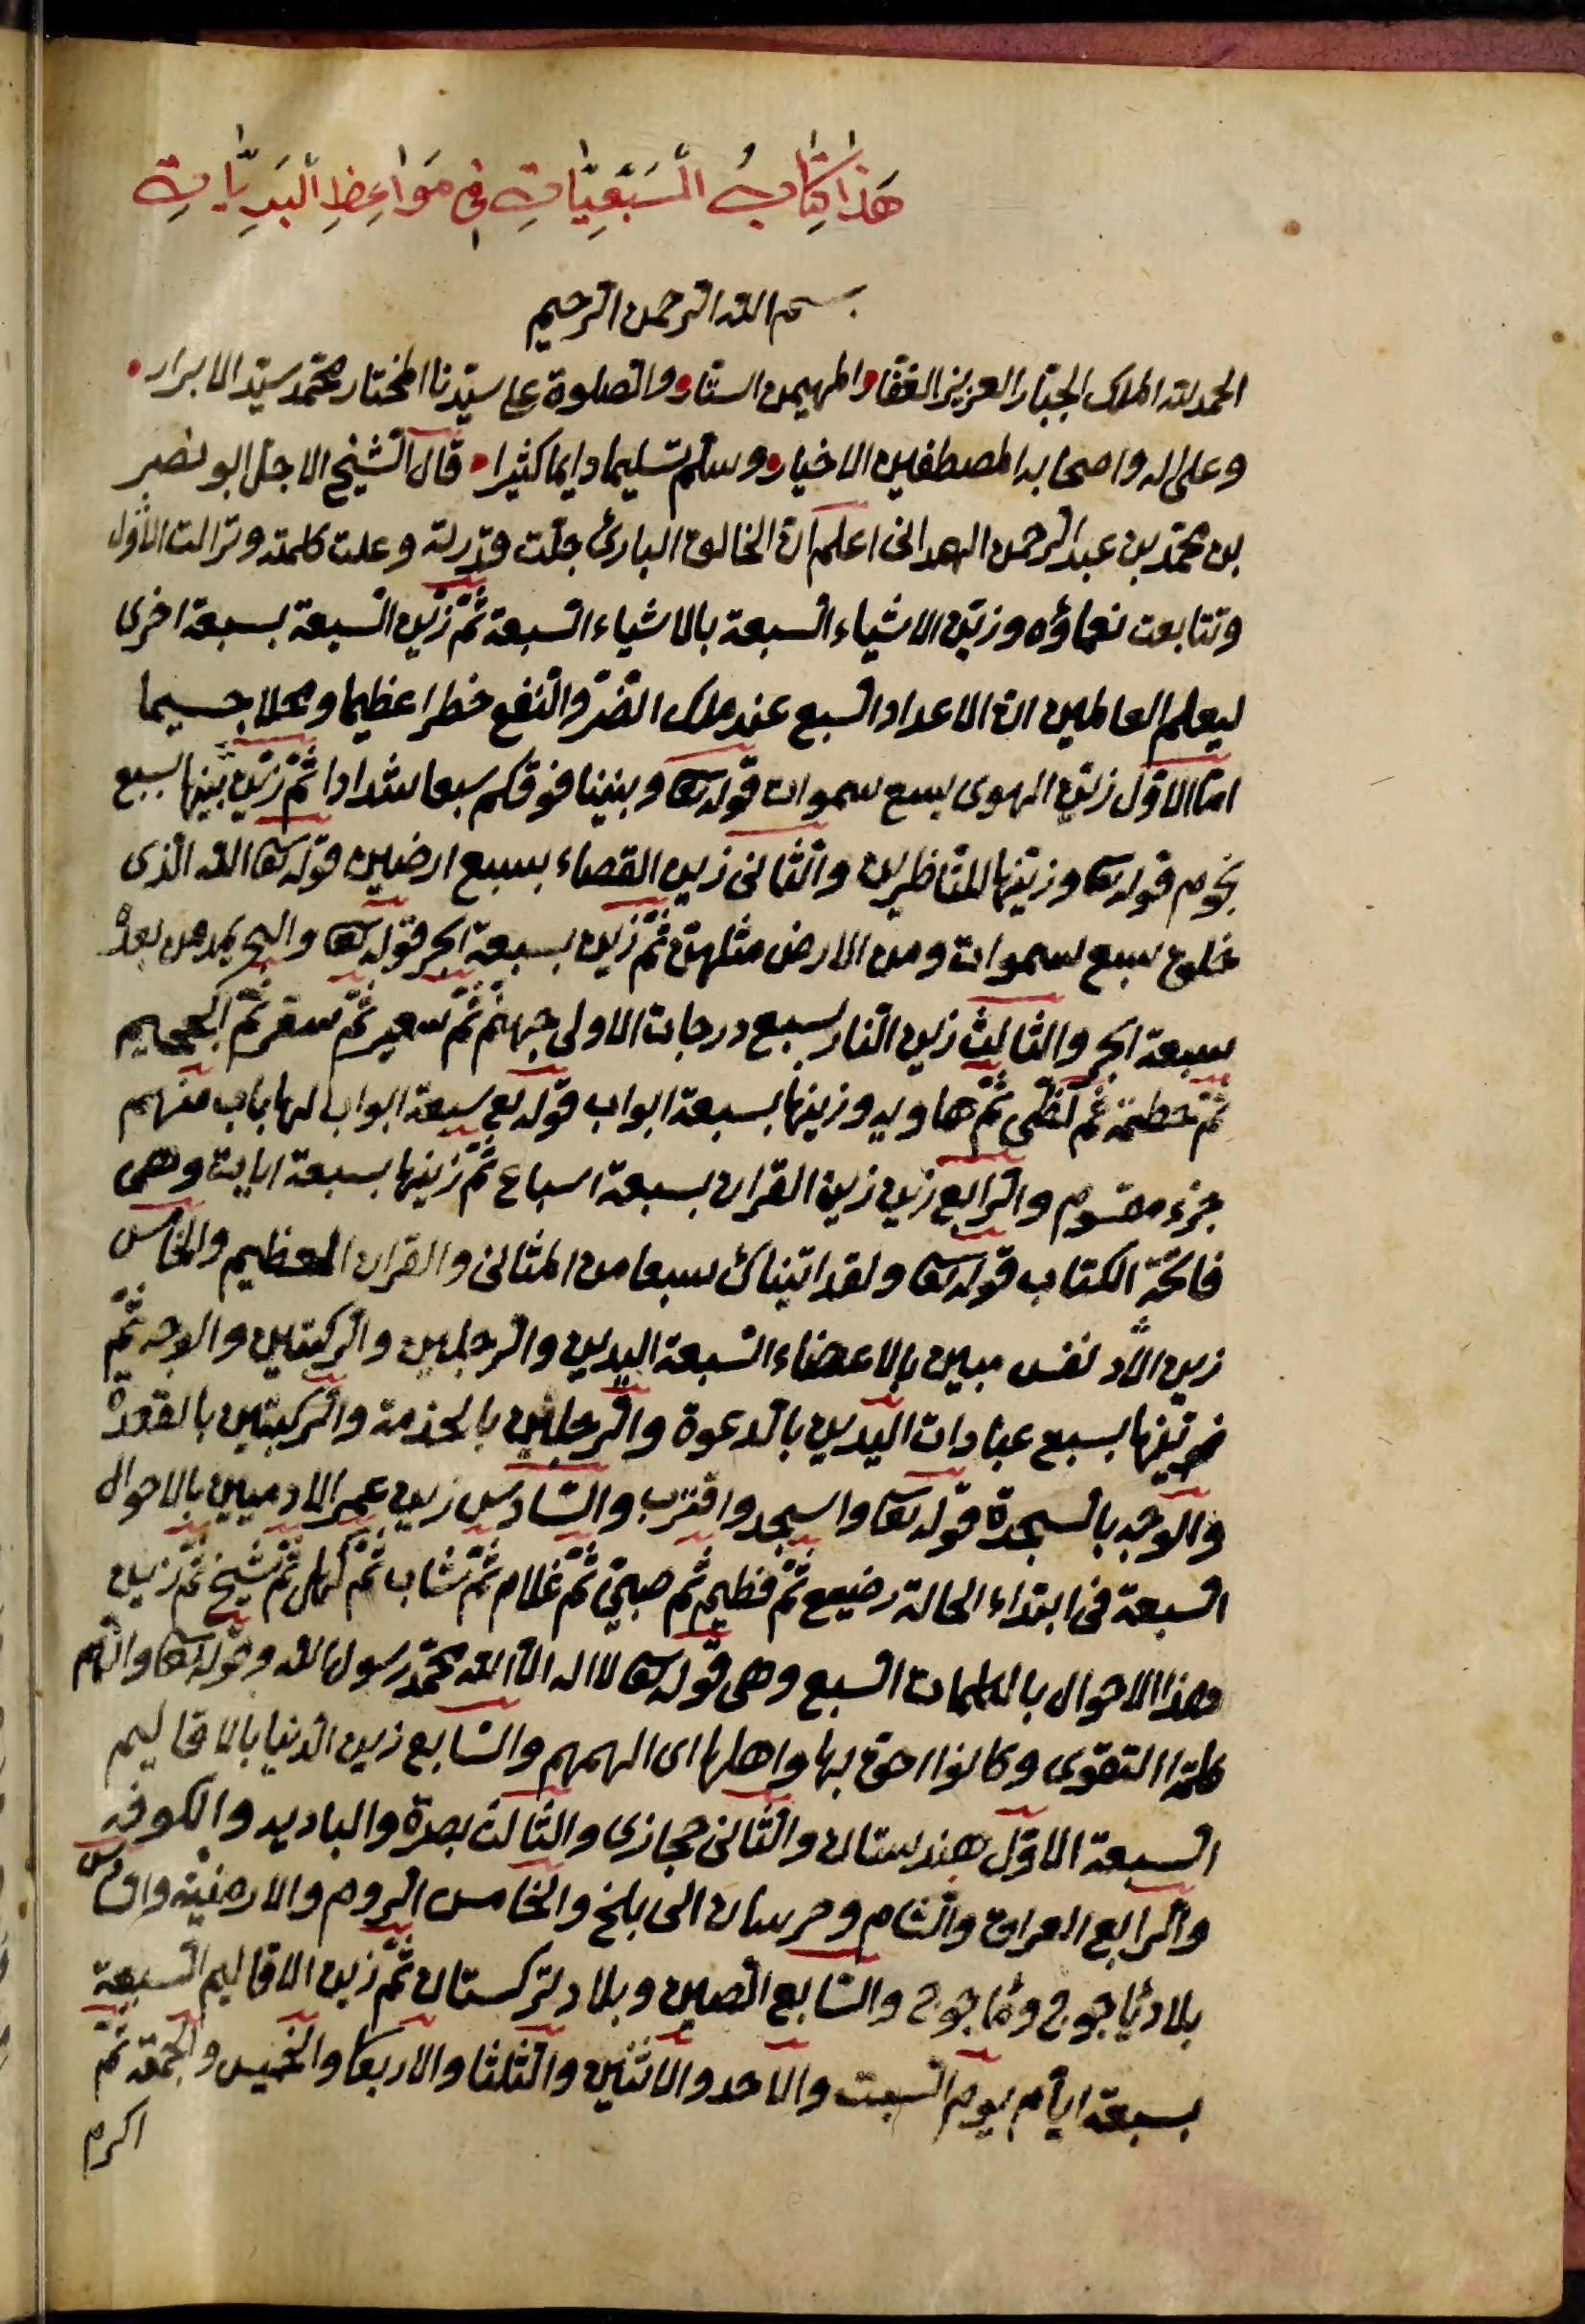 هَذَا كِتَابُ السَّبْعِيَّاتِ فِي مَوَاعِظِ الْبَرِيَّاتِ
بسم الله الرحمن الرحيم
الحمد لله الملك الجبّار العزيز الغفار والمهيمن الستّار والصلوة على سيّدنا المختار محمّد سيّد الابرار
وعلى اله واصحابه المصطفين الاخيار وسلّم تسليما دايما كثيرا قال الشيخ الاجل ابو نصر
بن محمّد بن عبد الرحمن الهمدانى اعلم ان الخالق البارئ جلّت قدرته وعلت كلمته وترالت الاؤه
وتتابعت نعماؤه وزيّن الاشياء السبعة بالاشياء السبعة ثمّ زيّن السبعة بسبعة اخرى
ليعلم العالمين ان الاعداد السبع عند ملك الضرّ والنفع خطرا عظيما ومحلا جسيما
امّا الاوّل زيّن الهوى بسبع سموات قوله تعا وبنينا فوقكم سبعا شدادا ثمّ زيّن بسبع
نجوم قوله تعا وزيّنها للنّاظرين والثّانى زين القضاء بسبع ارضين قوله تعا الله الذى
خلق سبع سموات ومن الارض مثلهنّ ثمّ زيّن بسبعة ابحر قوله تعا والبحر يمده من بعده
سبعة ابحر والثالث زين النّار بسبع درجات الاولى جهنّم ثمّ سعير ثمّ سقر ثمّ الجحيم
ثمّ حطمة ثمّ لظى ثمّ هاويه وزينها بسبعة ابواب قوله تع سبعة ابواب لها باب منهم
جزء مقسوم والرّابع زيّن زين القران بسبعة اسباع ثمّ زينها بسبعة ايات وهى
فاتحة الكتاب قوله تعا ولقد اتيناك سبعا من المثانى والقران العظيم والخامس
زين الاد نفس مبين بالاعضاء السّبعة اليدين والرجلين والركبتين والوجه ثمّ
زيّنها بسبع عبادات اليدين بالدعوة والرجلين بالخدمة والركبتين بالقعدة
والوجه بالسجدة قوله تعا واسجد واقترب والسّادس زين عمر الادميين بالاحوال
السبعة فى ابتداء الحالة رضيع ثمّ فطيم ثم صبىّ ثمّ غلام ثمّ شاب ثمّ كهل ثمّ شيخ ثمّ زين
هذا الاحوال بالكلمات السبع وهى قوله تعا لا اله الّا الله محمّد رسول الله وقوله تعا والزمهم
كلمة التقوى وكانوا احق بها واهلها اى الهمهم والسّابع زين الدنيا بالاقاليم
السبعة الاوّل هندستان والثّانى حجازى والثّالث بصرة والباديه والكوفه
والرّابع العراق والشام وخرسان الى بلخ والخامس الروم والارمنية والسّادس
بلاد ياجوج وماجوج والسّابع الصين وبلاد تركستان ثمّ زين الاقاليم السبعة
بسبعة ايّام يوم السبت والاحد والاثنين والثلثا والاربعا والخميس والجمعة ثمّ
اكرم